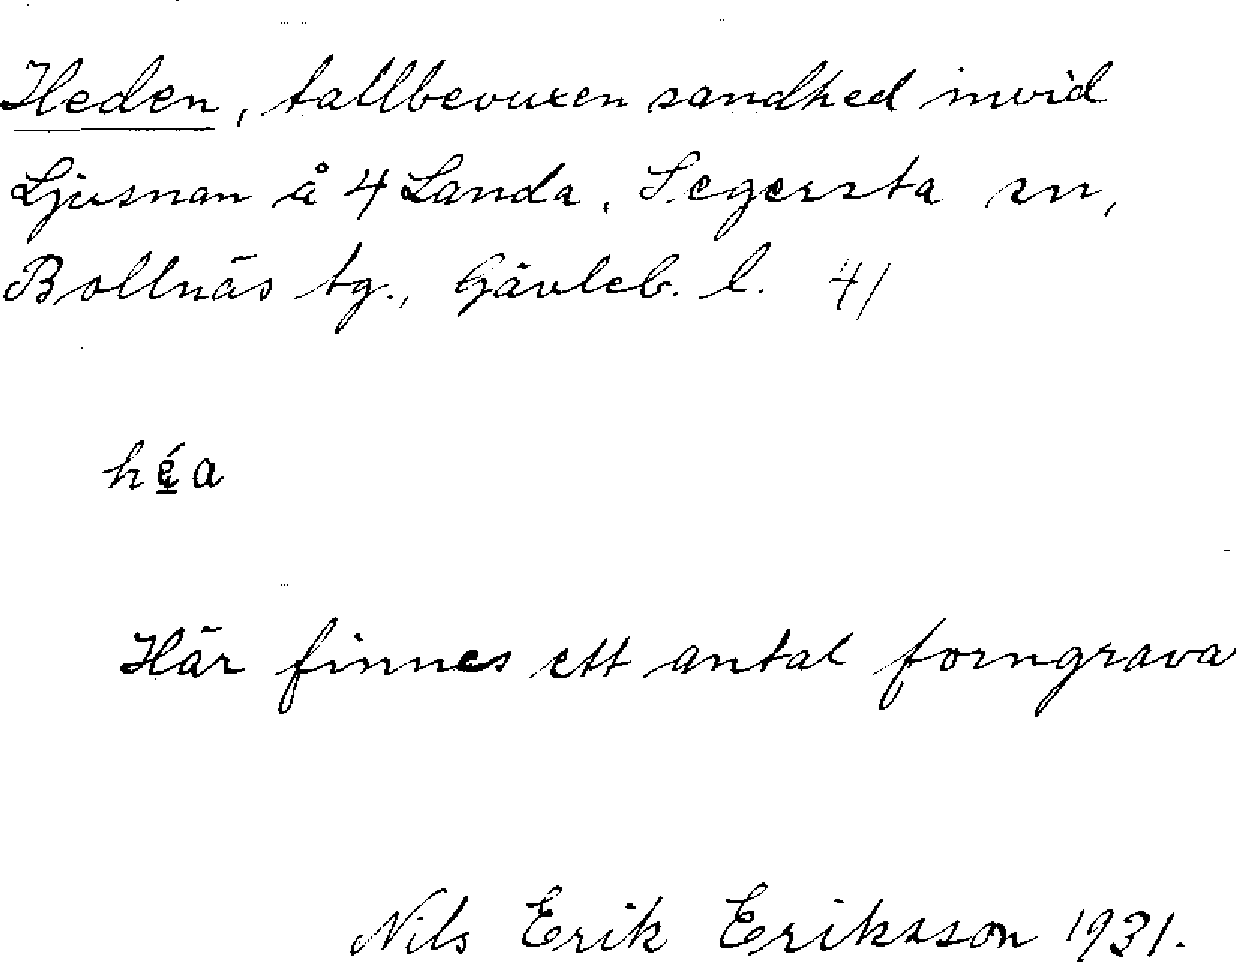 Heden, tallbevuxen sandhed invid
Ljusnan å 4 Landa, Segersta sn,
Bollnäs tg., Gävleb. l. 41
hé̱a
Här finnes ett antal forngrava
Nils Erik Eriksson 1931.